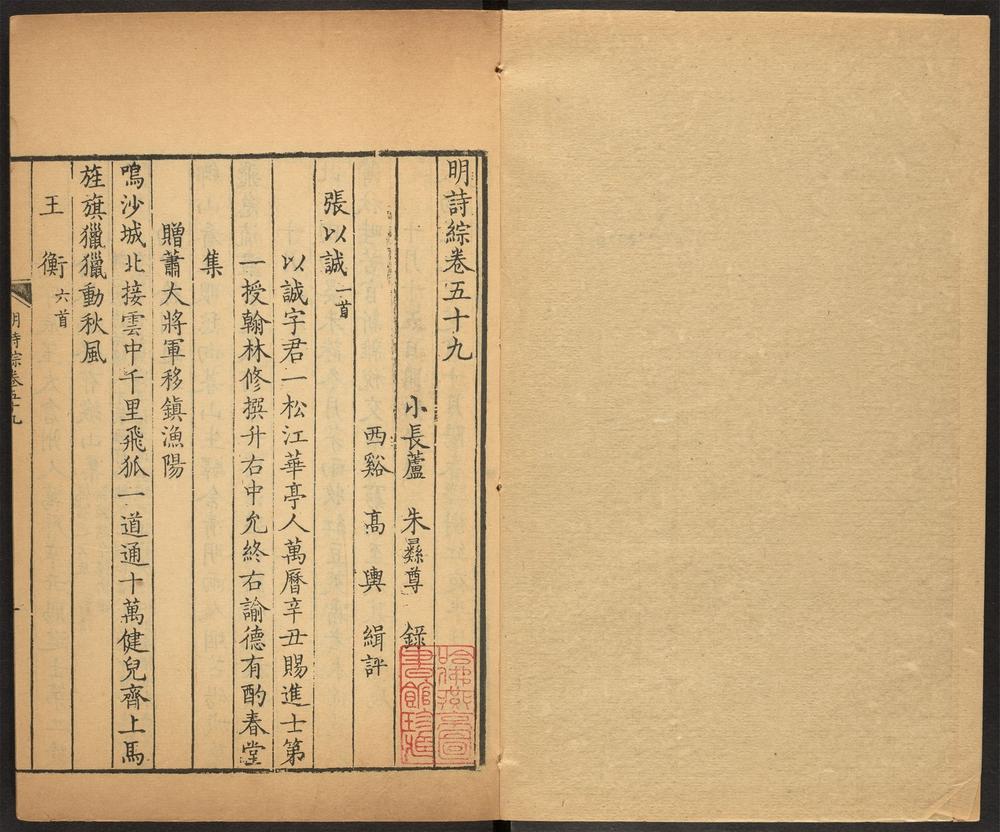 明詩綜卷五十九
小長蘆 朱彞尊 錄
西谿 高輿 緝評
張以誠一首
以誠字君一松江華亭人萬曆辛丑賜進士第
一授翰林修撰升右中允終右諭德有酌春堂
集
贈蕭大將軍移鎮漁陽
鳴沙城北接雲中千里飛狐一道通十萬健兒齊上馬
旌旗獵獵動秋風
王衡六首
明詩綜卷五十九
哈佛燕京圖書館珍藏